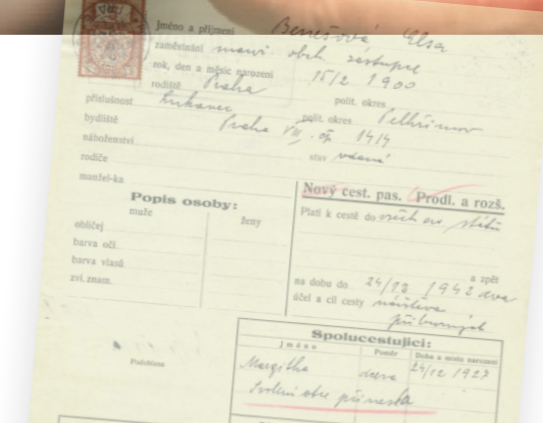 Jméno a příjmení Benešová Elsa
zaměstnání manž. obch. zástupce
rok, den a měsíc narození 15/2 1900
rodiště Praha polit. okres
příslušnost Lukavec polit. okres Pelhřimov
bydliště Praha VII. čp. 1414
náboženství stav vdaná
rodiče
manžel-ka
Popis osoby:
muže ženy
obličej
barva očí
barva vlasů
zvl. znam.
Nový cest. pas. Prodl. a rozš.
Platí k cestě do všech ev. států
a zpět
na dobu do 24/12 1942 dva
účel a cíl cesty návštěva
příbuzných
Spolucestující:
jméno Poměr Doba a místo narození
Margitha dcera 24/12 1927
Svolení otce přinesla
Podobizna